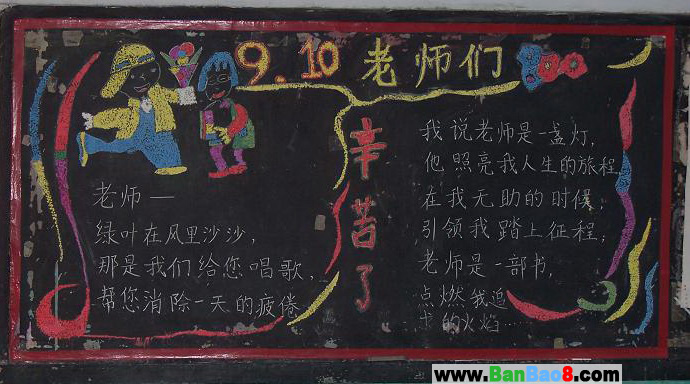 9.10 老师们
辛苦了
老师—
绿叶在风里沙沙,
那是我们给您唱歌,
帮您消除一天的疲倦
我说老师是一盏灯,
他照亮我人生的旅程
在我无助的时候;
引领我踏上征程;
老师是一部书,
点燃我追
求的火焰……
www.BanBao8.com